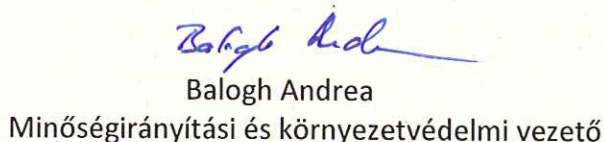 Balogh Andrea
Balogh Andrea
Minőségirányítási és környezetvédelmi vezető